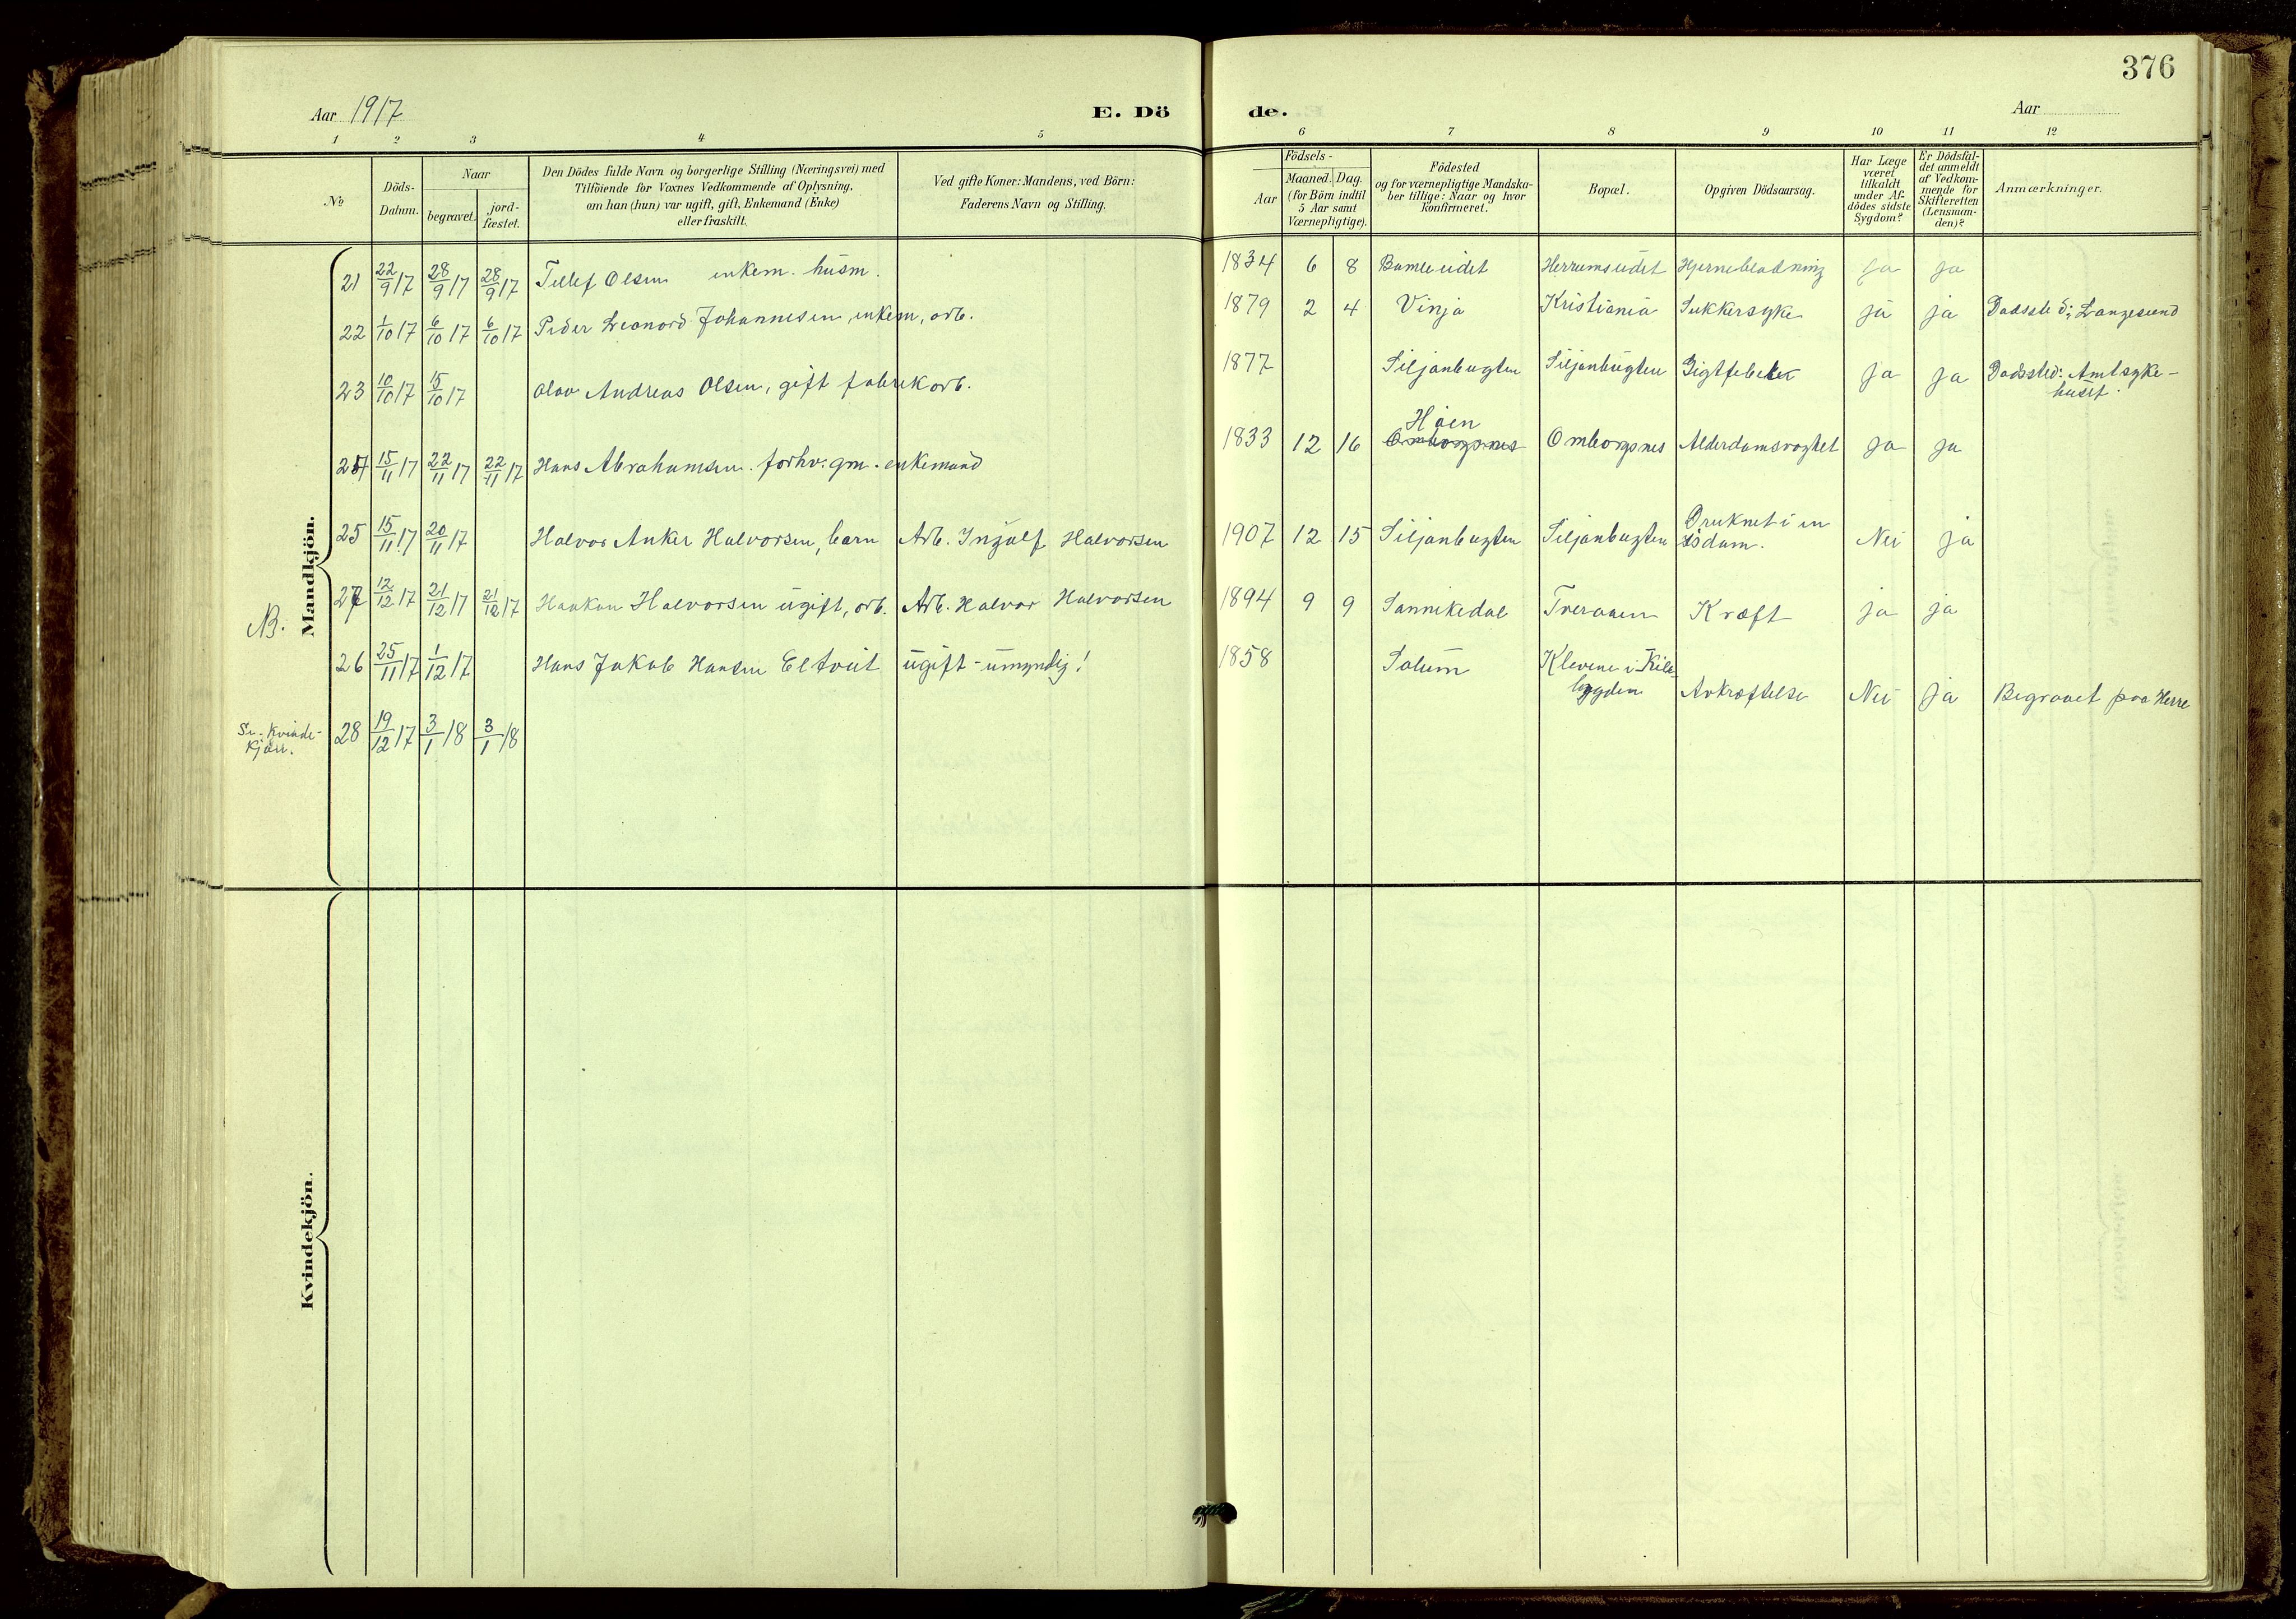 376
Aar 1917 E. Dö de. Aar
1 2 3 4 5 6 7 8 9 10 11 12
№
Döds-
Datum.
Naar
begravet.
jord-
fæstet.
Den Dödes fulde Navn og borgerlige Stilling (Næringsvei) med
Tilföiende for Voxnes Vedkommende af Oplysning,
om han (hun) var ugift, gift, Enkemand (Enke)
eller fraskilt.
Ved gifte Koner: Mandens, ved Börn:
Faderens Navn og Stilling.
Födsels-
Aar
Maaned. Dag.
(for Börn indtil
5 Aar samt
Værnepligtige).
Födested
og for værnepligtige Mandska-
ber tillige: Naar og hvor
konfirmeret.
Bopæl.
Opgiven Dödsaarsag.
Har Læge
været
tilkaldt
under Af-
dödes sidste
Sygdom?
Er Dödsfal-
det anmeldt
af Vedkom-
mende for
Skifteretten
(Lensman-
den)?
Anmærkninger.
Mandkjön.
21 22/9 17 28/9 17 28/9 17 Tellef Olsen enkem. husm. 1834 6 8 Bamleeidet Herrumseidet Hjerneblødning ja ja
22 1/10 17 6/10 17 6/10 17 Peder Leonard Johannesen, enkem, arb. 1879 2 4 Vinja Kristiania Sukkersyke ja ja Dødssted: Langesund
23 10/10 17 15/10 17 Olav Andreas Olsen, gift fabrikarb. 1877 Siljanbugten Siljanbugten Gigtfeber ja ja Dødssted: Amtsyke-
huset.
Håen
24 15/11 17 22/11 17 22/11 17 Hans Abrahamsen. forhv. gm. enkemand 1833 12 16 Omborgsnes Omborgsnes Alderdomsvaghet ja ja
25 15/11 17 20/11 17 Halvor Anker Halvorsen, barn Arb. Ingolf Halvorsen 1907 12 15 Siljanbugten Siljanbugten Druknet i en
isdam. Nei ja
B.
27 12/12 17 21/12 17 21/12 17 Haakon Halvorsen ugift, arb. Arb. Halvor Halvorsen 1894 9 9 Sannikedal Tveraaen Kræft ja ja
26 25/11 17 1/12 17 Hans Jakob Hansen Eltveit ugift - umyndig! 1858 Solum Klevene i Kile-
bygden Avkræftelse Nei ja Begravet paa Herre
Se. Kvinde-
kjøn.
28 19/12 17 3/1 18 3/1 18
Kvindekjön.